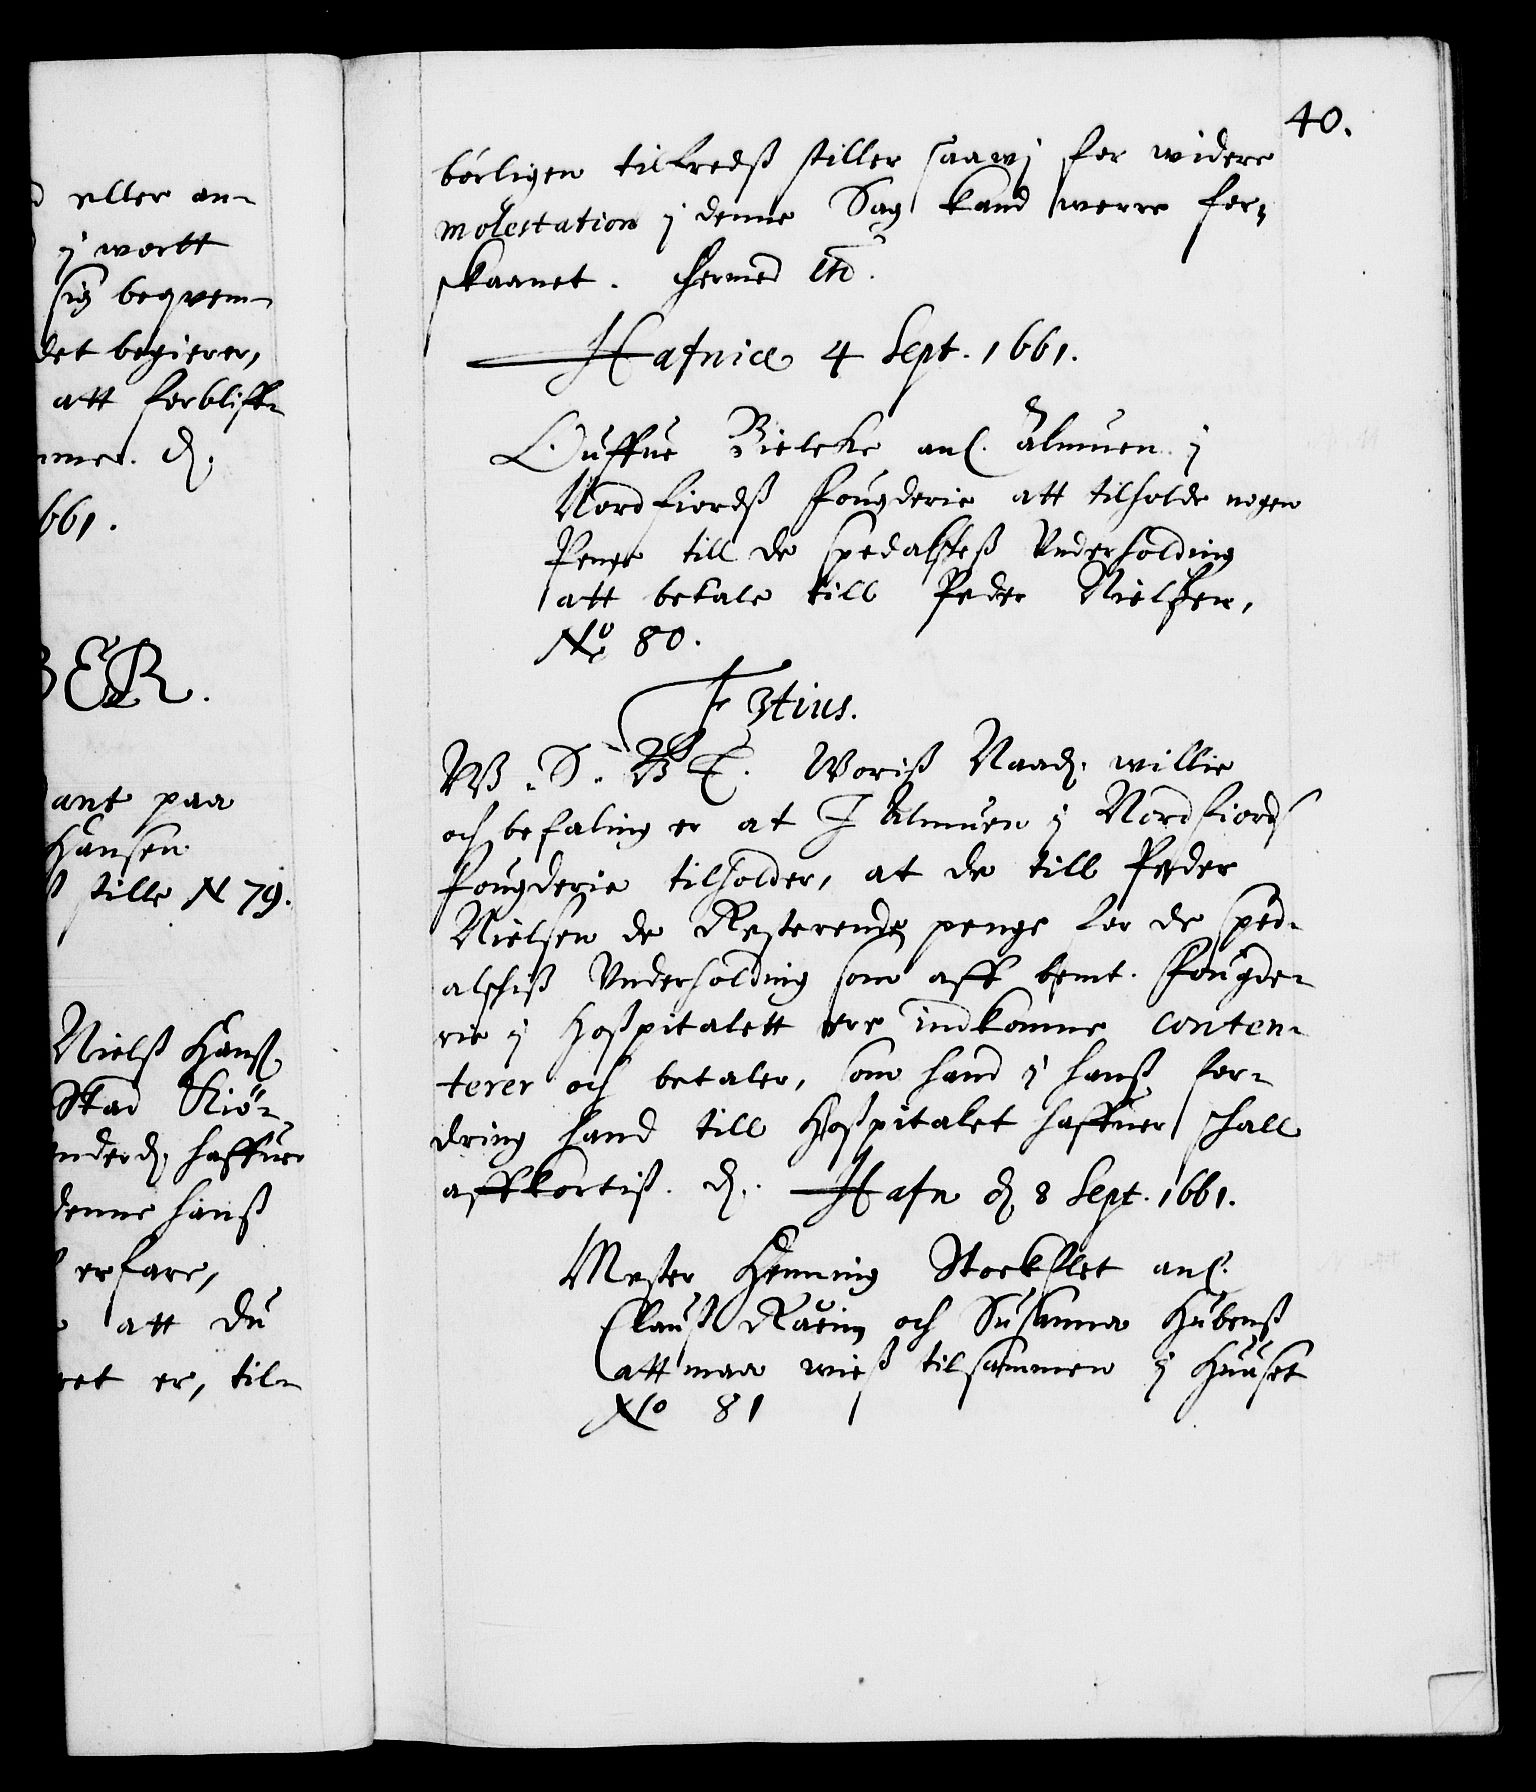 eller an-
j wertt
sig beqvem-
det begierer,
att forbliff-
mme. d.
661.
BER.
ant paa
Hansen
stille N 79.
Nielß Hanß
Stad Kiö-
nderd. haffuer
denne hanß
erfare,
att du
ret er, til-
40.
börligen tilfredß stiller saa wj for widere
molestation j denne Sag kand werre for-
skaanet. Hermed etc.
Hafniæ 4 Sept. 1661.
Ouffue Bielcke anl. almuen j
Nordfiordß fougderie att tilholde nogen
Penge till de spedalskeß Underholding
att betale till Peder Nielßen,
No 80.
F 3tius.
W. S. G. T. Woriß Naad. willie
och befaling er at I Almuen j Nordfiords
fougderie tilholder, at de till Peder
Nielsen de Resterende penge for de sped-
alskiß Underholding som aff bemt. fougde-
rie j Hoßpitalett ere indkomne conten-
terer och betaler, som hand j hanß for-
dring hand till Hoßpitalet haffuer schall
affkortiß. d. Hafn d 8 Sept. 1661.
Mester Henning Stockflet anl.
Clauß Raein och Susanna Hubenß
att maa wieß tilsammen j Huuset
No 81